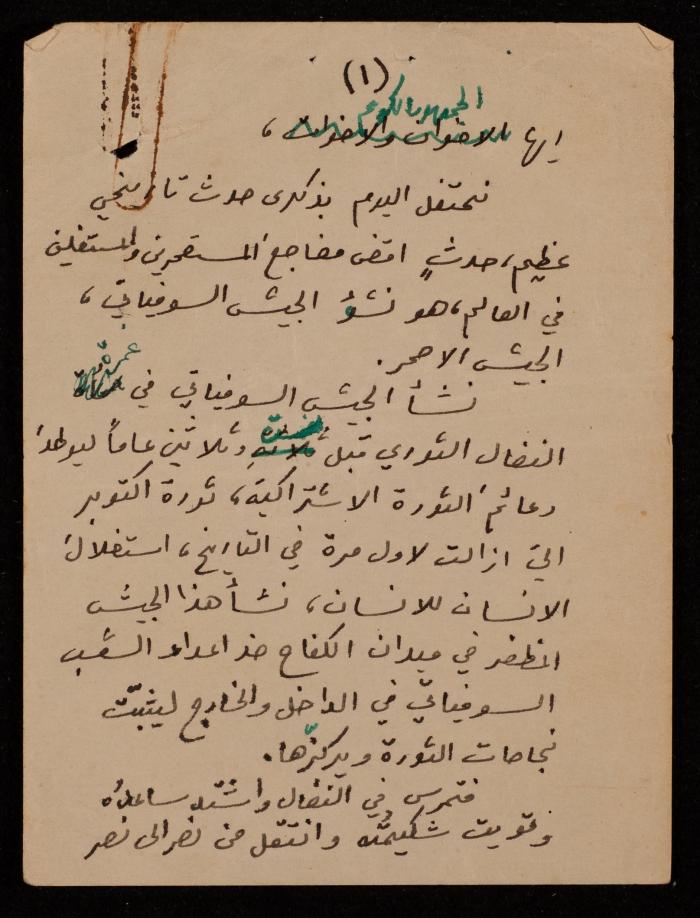 (١)
الجمهور الكريم
ايها الاخوان والاخوات،
نحتفل اليوم بذكرى حدث تاريخي
عظيم، حدثٍ اقض مضاجع المستعمرين والمستغلين
في العالم، هو نشوُ الجيش السوفياتي،
الجيش الاحمر.
نشأ الجيش السوفياتي في غمرة
النضال الثوري قبل وثلاثين عاماً ليوطد
دعائم الثورة الاشتراكية، ثورة اكتوبر
التي ازالت لاول مرة في التاريخ، استغلال
الانسان للانسان، نشأ هذا الجيش
المظفر في ميدان الكفاح ضد اعداء الشعب
السوفياتي في الداخل والخارج ليثبّت
نجاحات الثورة ويركزّها.
فتمرس في النضال واشتد ساعدُه
وقويت شكيمتُه وانتقل من نصر الى نصر